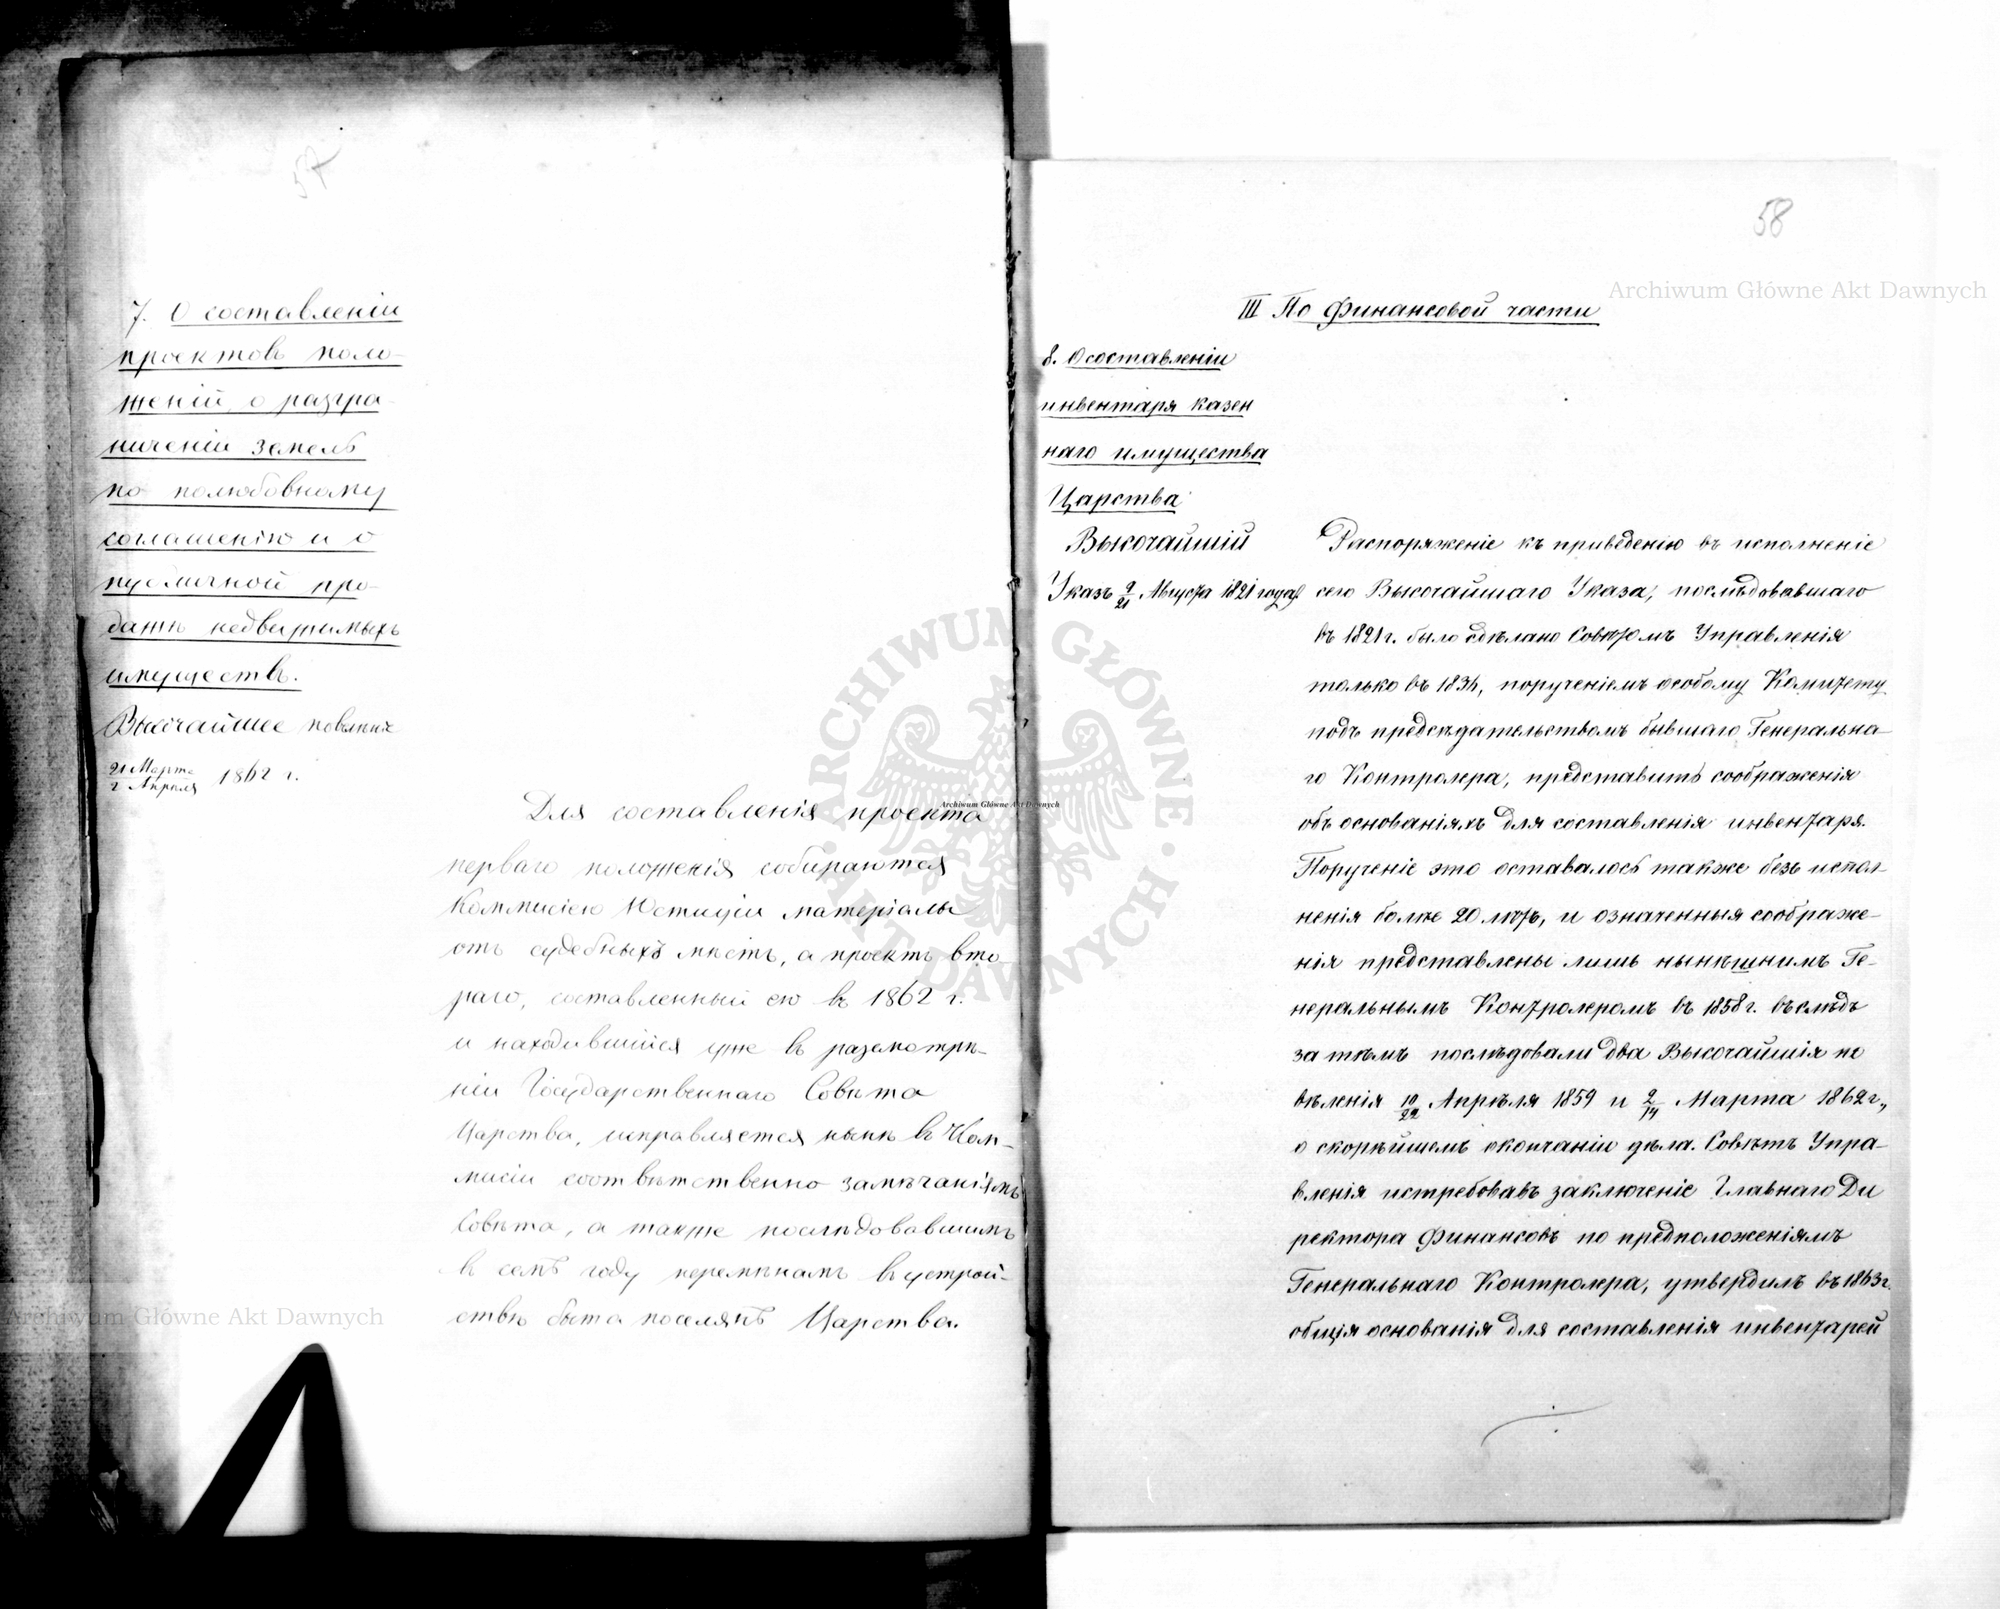 57
7. О составленіи
проектовъ поло-
женій о разгра-
ниченіи земель
по полюбовному
соглашенію и о
публичной про-
дажѣ недвижимыхъ
имуществъ.
Высочайшее повелѣніе
21 Марта
2 Апрѣля 1862 г.
Для составленія проекта
перваго положенія собираются
Коммисіею Юстиціи матеріалы
отъ судебныхъ мѣстъ, а проектъ вто-
раго, составленный ею въ 1862 г.
и находившійся уже въ разсмотрѣ-
ніи Государственнаго Совѣта
Царства, исправляется нынѣ въ Ком-
мисіи соотвѣтственно замѣчаніямъ
Совѣта, а также послѣдовавшимъ
въ семъ году перемѣнамъ въ устрой-
ствѣ быта поселянъ Царства.
58
III По Финансовой части
8. О составленіи
инвентаря казен
наго имущества
Царства
Высочайшій
Указъ 9/21 Августа 1821 года
Распоряженіе къ приведенію въ исполненіе
сего Высочайшаго Указа, послѣдовавшаго
въ 1821 г. было сдѣлано Совѣтомъ Управленія
только въ 1834, порученіемъ особому Комитету
подъ предсѣдательствомъ бывшаго Генерально-
го Контролера, представить соображенія
объ основаніяхъ для составленія инвентаря.
Порученіе это оставалось также безъ испол-
ненія болѣе 20 лѣтъ, и означенныя соображе-
нія представлены лишь нынѣшнимъ Ге-
неральнымъ Контролеромъ въ 1858 г. въ слѣдъ
за тѣмъ послѣдовали два Высочайшія по
велѣнія 10/22 Апрѣля 1859 и 2/14 Марта 1862 г.,
о скорѣйшемъ окончаніи дѣла. Совѣтъ Упра-
вленія истребовавъ заключеніе Главнаго Ди
ректора Финансовъ по предположеніямъ
Генеральнаго Контролера, утвердилъ въ 1863 г.
общія основанія для составленія инвентарей
Archiwum Główne Akt Dawnych
Archiwum Główne Akt Dawnych
Archiwum Główne Akt Dawnych
ARCHIWUM GŁÓWNE · AKT DAWNYCH ·